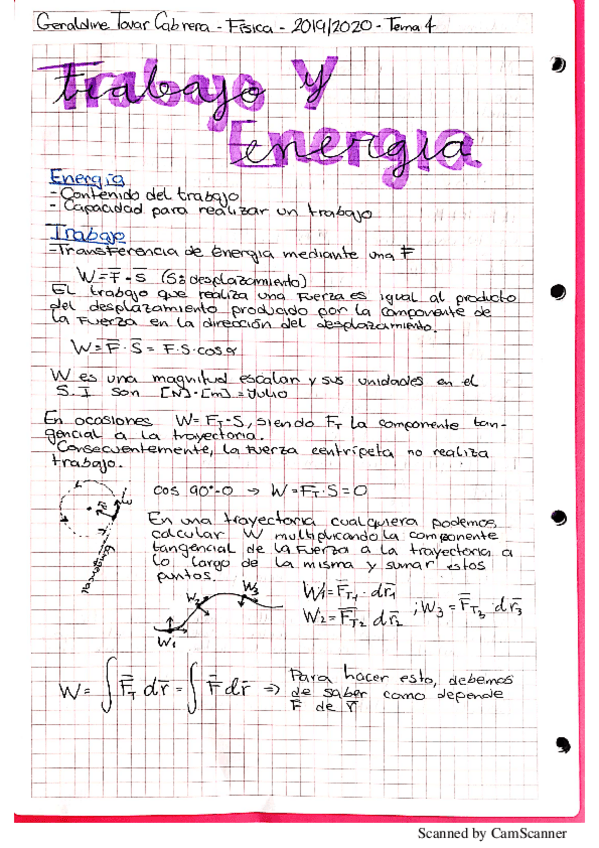 Geraldine Tovar Cabrera - Física - 2019/2020 - Tema 4
Trabajo y
Energía
Energía
- Contenido del trabajo
- Capacidad para realizar un trabajo
Trabajo
- Transferencia de energía mediante una F⃗
W = F⃗ · S⃗ (S: desplazamiento)
El trabajo que realiza una fuerza es igual al producto
del desplazamiento producido por la componente de
la fuerza en la dirección del desplazamiento.
W = F⃗ · S⃗ = F·S·cosα
W es una magnitud escalar y sus unidades en el
S.I son [N]·[m] = Julio
En ocasiones W = F_T · S, siendo F_T la componente tan-
gencial a la trayectoria.
Consecuentemente, la fuerza centrípeta no realiza
trabajo.
cos 90° = 0 → W = F_T · S = 0
En una trayectoria cualquiera podemos
calcular W multiplicando la componente
tangencial de la fuerza a la trayectoria a
lo largo de la misma y sumar estos
puntos.
tangencial
W₁
W₂
W₃
W₁ = F⃗_T₁ · dr⃗₁
W₂ = F⃗_T₂ dr⃗₂ ; W₃ = F⃗_T₃ · dr⃗₃
W = ∫ F⃗_T dr⃗ = ∫ F⃗ dr⃗ ⇒ Para hacer esto, debemos
de saber como depende
F⃗ de r⃗
Scanned by CamScanner